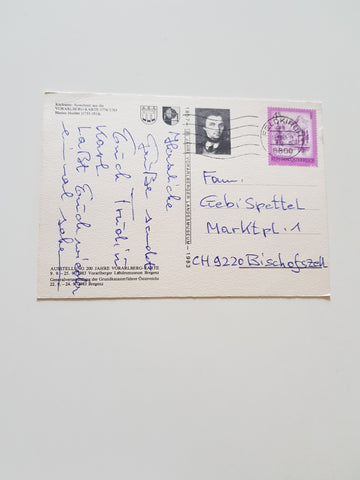 Kurhaus: Ausschnitt aus der
VORARLBERG-KARTE 1774/1783
Herzliche
Grüße sendet
Euch Trudi u.
Karl
Laßt Euch wieder
einmal sehen
AUSSTELLUNG 200 JAHRE VORARLBERG-KARTE
9. 9. - 25. 9. 1983 Vorarlberger Landesmuseum Bregenz
Generalversammlung der Grundkatasterführer Österreichs
22. 9. - 24. 9. 1983 Bregenz
VORARLBERGER LANDESMUSEUM — 1983
FELDKIRCH
6800
REPUBLIK ÖSTERREICH
Fam.
Gebi Spettel
Marktpl. 1
CH 9220 Bischofszell